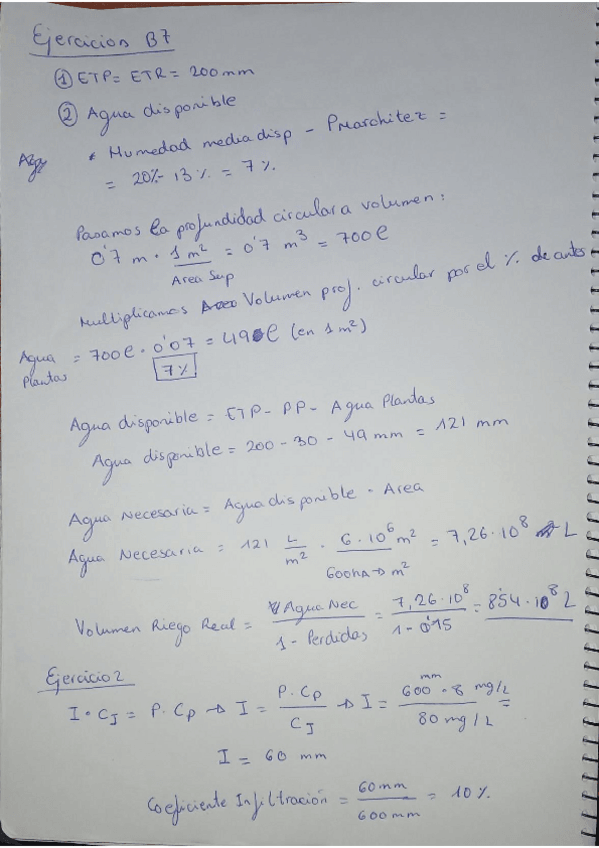 Ejercicios B7
① ETP = ETR = 200 mm
② Agua disponible
* Humedad media disp - Pmarchitez =
= 20% - 13% = 7%
Pasamos la profundidad circular a volumen:
0'7 m · 1 m² = 0'7 m³ = 700 l
Area Sup
Multiplicamos Volumen prof. circular por el % de antes
Agua Plantas = 700 l · 0'07 = 49 l (en 1 m²)
7%
Agua disponible = ETP - PP - Agua Plantas
Agua disponible = 200 - 30 - 49 mm = 121 mm
Agua Necesaria = Agua disponible · Area
Agua Necesaria = 121 L/m² · 6·10⁶ m² = 7,26·10⁸ L
600 ha → m²
Volumen Riego Real = Agua Nec / 1 - Perdidas = 7,26·10⁸ / 1 - 0'15 = 8'54·10⁸ L
Ejercicio 2
I · CI = P · Cp → I = P · Cp / CI → I = 600 mm · 8 mg/L / 80 mg/L =
I = 60 mm
Coeficiente Infiltración = 60 mm / 600 mm = 10%